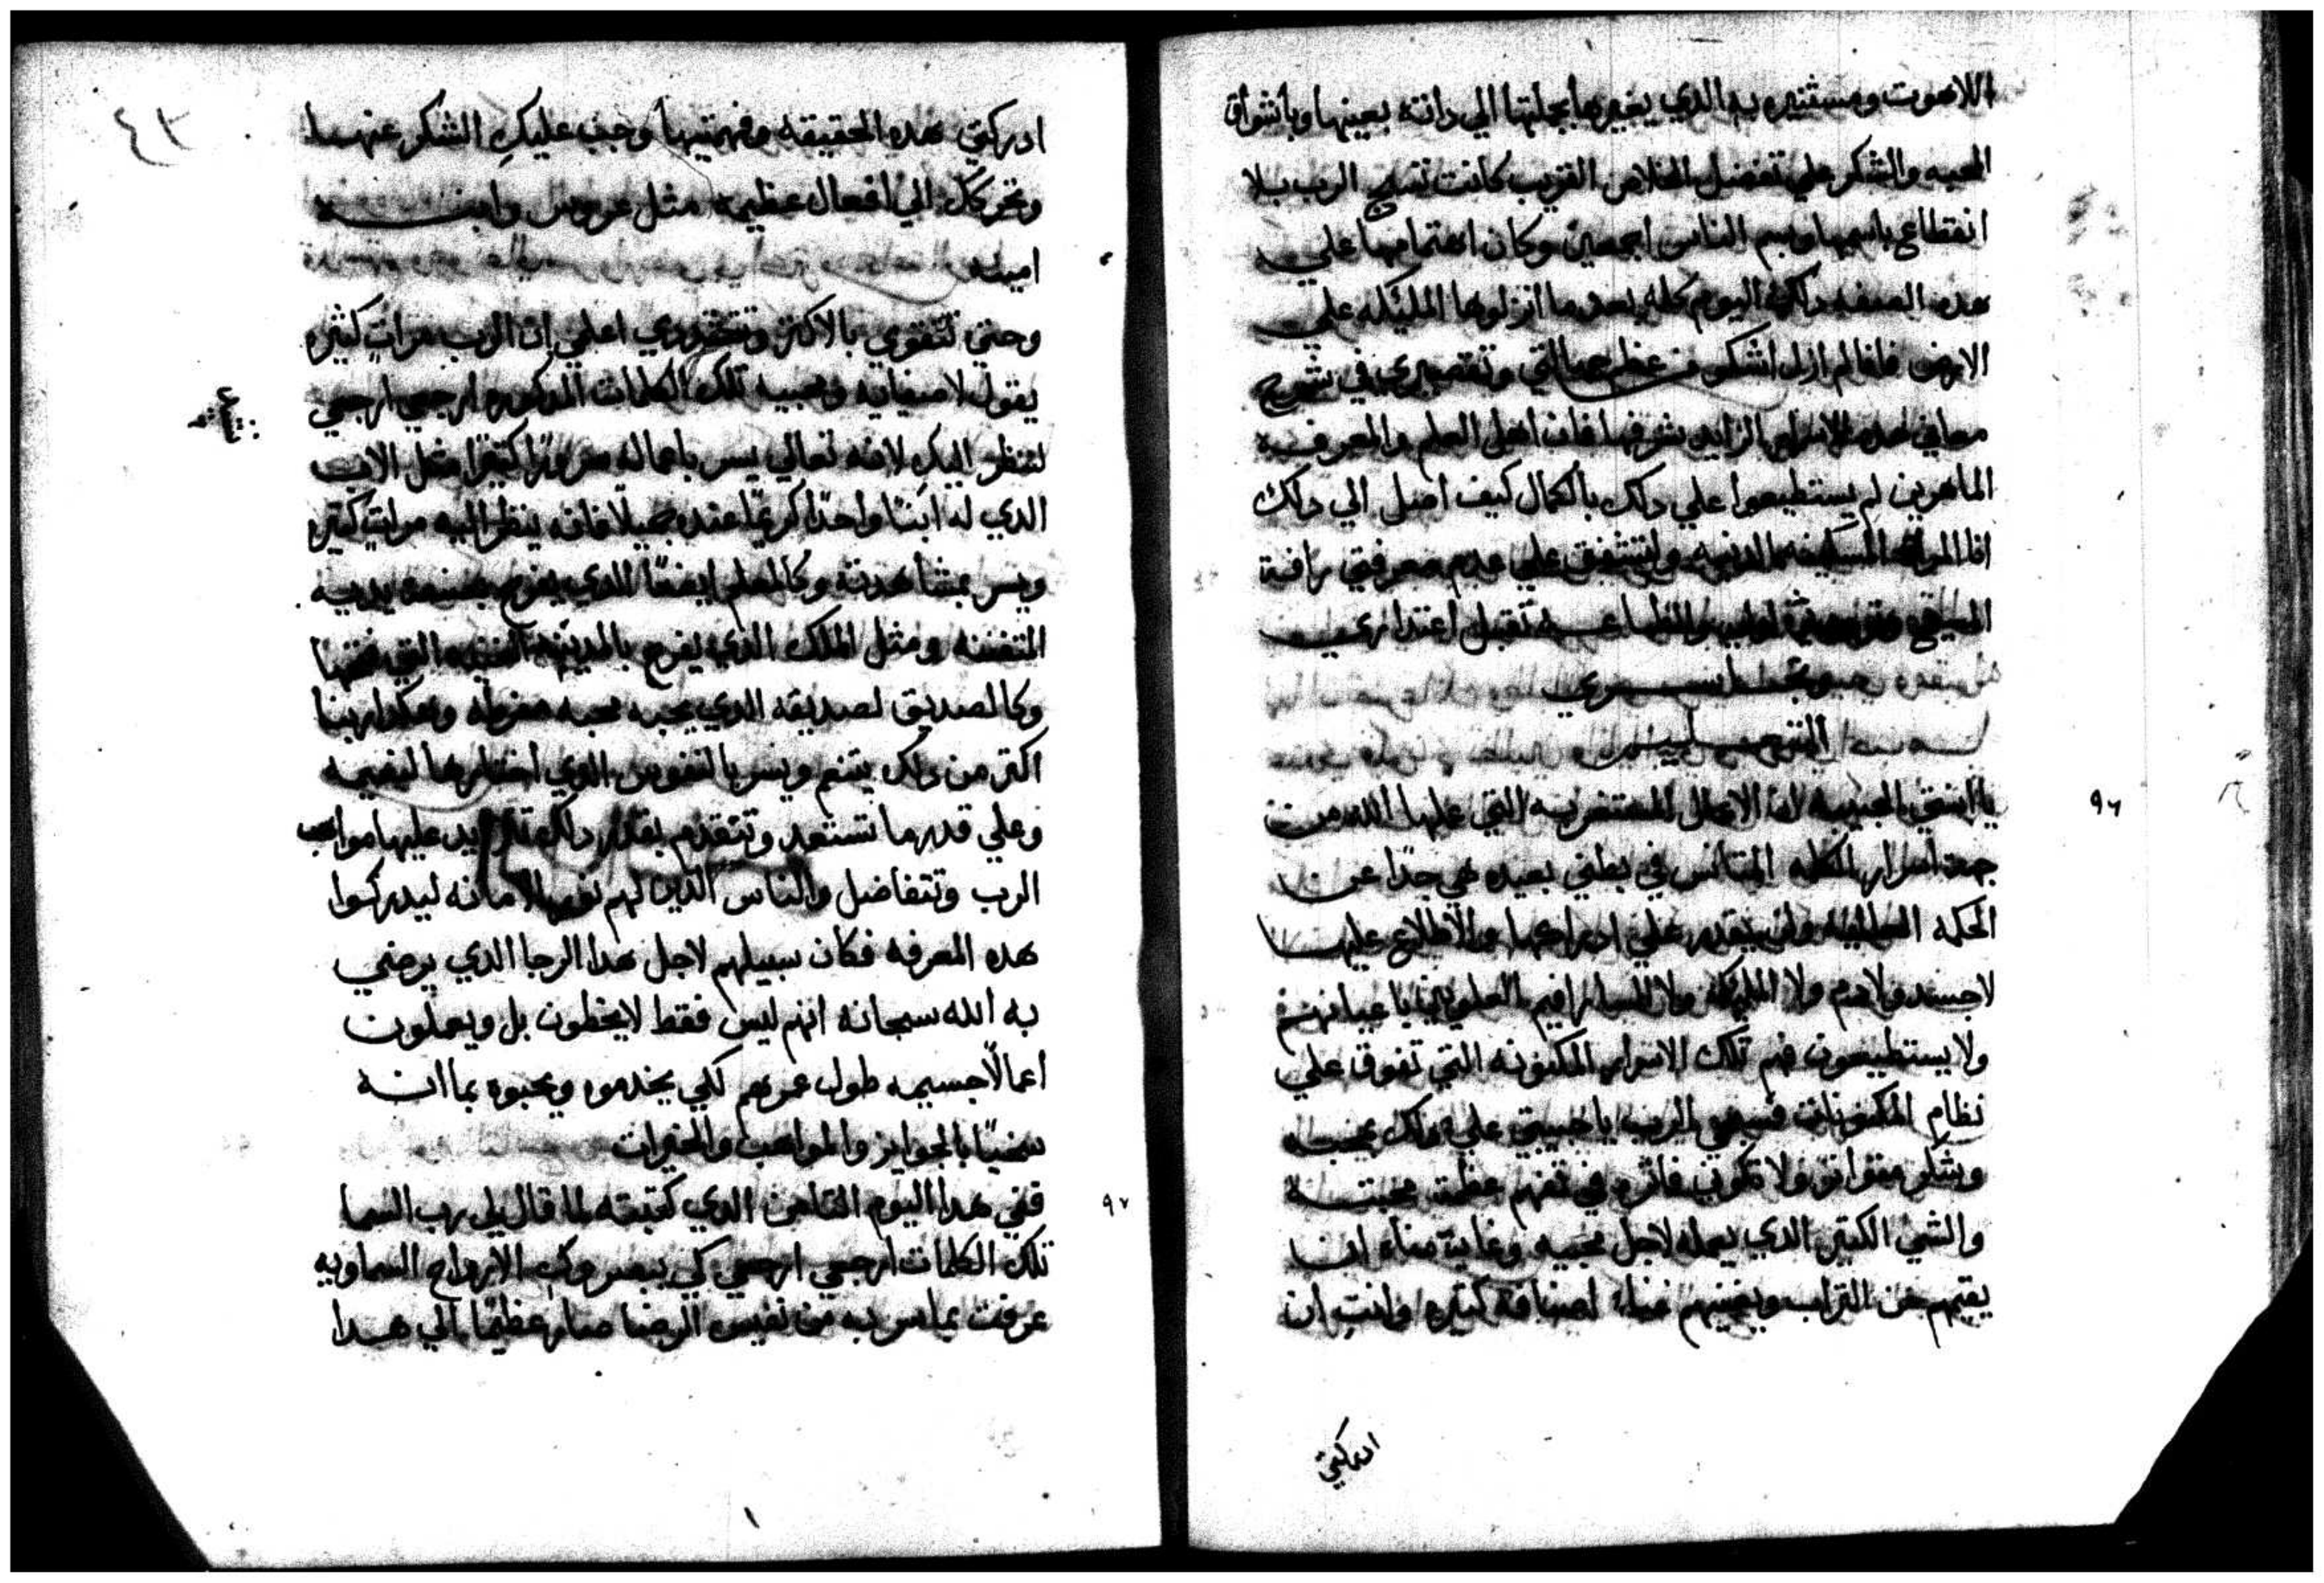 اللاهوت ومستنيره به الذي يغيرها بجملتها الي داته بعينها وباشواق
المحبه والشكر علي تفضل الخلاص القريب كانت تسبح الرب بلا
انقطاع باسمها وبسم الناس اجمعين وكان اهتمامها علي
هده الصفه دلك اليوم كله بعدما انزلوها المليكه علي
الارض فانا لم ازل اشكو من عظم جهالتي وتقصيري في شرح
معاني هده الاسرار الزايد شرفها فان اهل العلم والمعرفه
الماهرين لم يستطيعوا علي دلك بالكمال كيف اصل الي دلك
انا المراه المسكينه الدنيه ولتشفق علي عدم معرفتي رافة
المسيح والطاعه تقبل اعتذاري
يا ابنتي الحبيبه ان الاعمال المستغربه التي عملها الله من
جهة اسرار الكلمه المتانس في بطني بعيده هي جدًا عن
الحكمه العالميه ولن يقدر علي ادراكها والاطلاع عليها
لاجسد ولادم ولا المليكه ولا السارافيم العلويين باعيانهم
ولا يستطيعون فهم تلك الاسرار المكنونه التي تفوق علي
نظام المكنونات فسبحي الرب يا حبيبتي علي دلك بمحبه
وشكر متواتر ولا تكوني فاتره في تفهم عظمة محبته
والشي الكتير الدي يعمله لاجل محبيه وغاية مناه ان
يقيمهم من التراب ويغنيهم غناء اصنافه كتيره وانتِ ان
ادركتي
ادركتي هده الحقيقه وفهمتيها وجب عليكِ الشكر عنها
وتحركك الي افعال عظيمه مثل عروس وابنه
امينه
وحتي تتقوي بالاكتر وتتقددي اعلمي ان الرب مرات كتيره
يقول لاصفيايه ومحبيه تلك الكلمات المدكوره ارجعي ارجعي
لننظر اليكِ لانه تعالي يسر باعماله سرورًا كتيرًا مثل الاب
الدي له ابنًا واحدًا كريمًا عنده جميلًا فانه ينظر اليه مرات كتيره
ويسر بمشاهدته وكالمعلم ايضًا الدي يفرح بصنعة يديه
المتقنه ومثل الملك الدي يفرح بالمدينه الغنيه التي فتحها
وكالصديق لصديقه الدي يحبه محبه مفرطه وهكدا ربنا
اكتر من دلك يتنعم ويسر بالنفوس الدي اختارها لنعيمه
وعلي قدر ما تستعد وتتقدم بقدر دلك تتزايد عليها مواهب
الرب وتتفاضل والناس الدين لهم نور الامانه ليدركوا
هده المعرفه فكان سبيلهم لاجل هدا الرجا الدي يرضي
به الله سبحانه انهم ليس فقط لايخطون بل ويعملون
أعمالًا جسيمه طول عمرهم لكي يخدموه ويحبوه بما انه
سخيًا بالجوايز والمواهب والخيرات
ففي هدا اليوم التامن الدي كتبته لما قال لي رب السما
تلك الكلمات ارجعي ارجعي كي يبصروكِ الارواح السماويه
عرفت بما سر به من نفيس الرضا صار عظيمًا الي هدا
٩٦
٩٧
٤٢